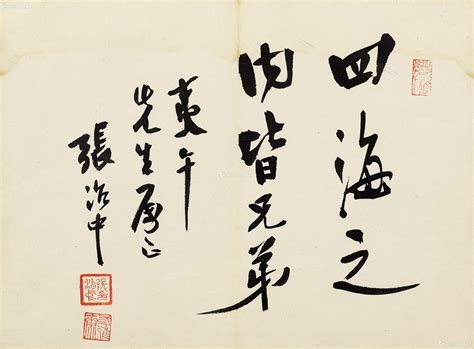 四海之
内皆兄弟
夷午
先生属正
張治中